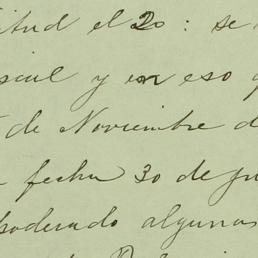 itud el 20: se
y en eso
de Noviembre d
fecha 30 de Ju
poderado algunas